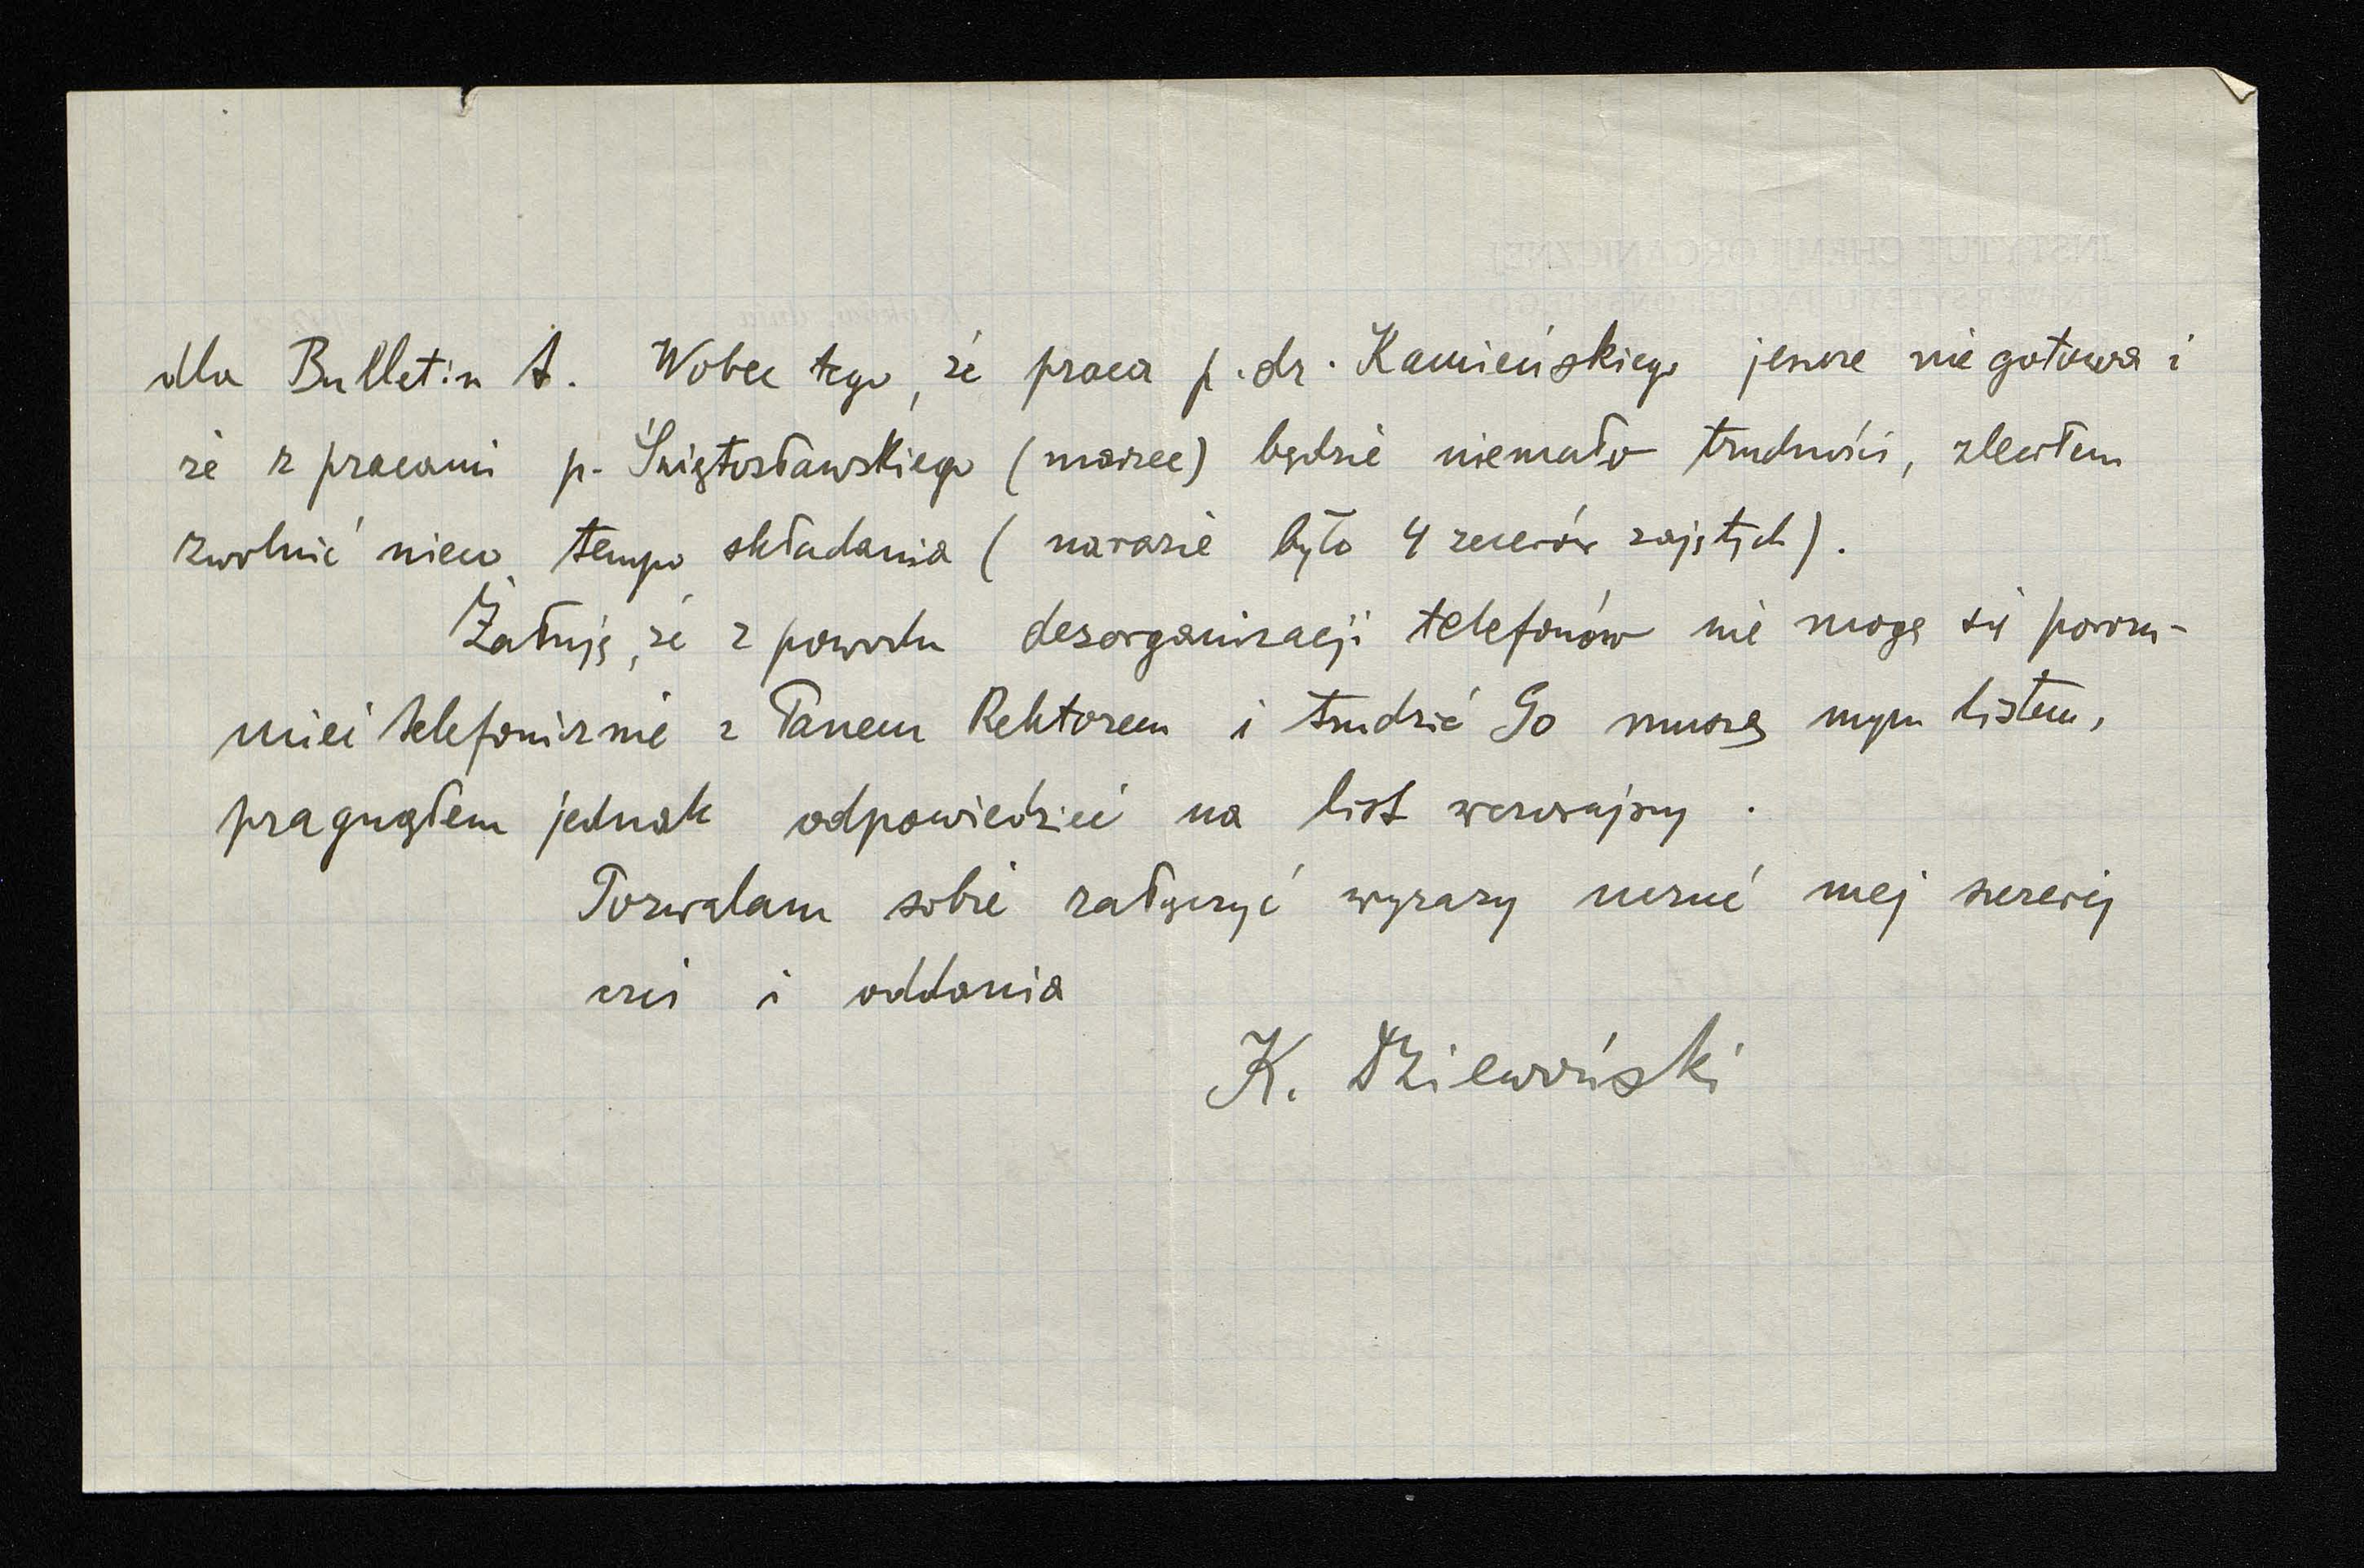 dla Bulletin A. Wobec tego, że praca p. dr. Kamieńskiego jeszcze nie gotowa i
że z pracami p. Świętosławskiego (marzec) będzie niemało trudności, zleciłem
zwolnić nieco tempo składania (narazie było 4 zecerów zajętych).
Żałuję, że z powodu desorganizacji telefonów nie mogę się porozu-
mieć telefonicznie z Panem Rektorem i trudzić Go muszę mym listem,
pragnąłem jednak odpowiedzieć na list wczorajszy.
Pozwalam sobie załączyć wyrazy uczuć mej szczerej
czci i oddania
K. Dziewoński
INSTYTUT CHEMJI ORGANICZNEJ
UNIWERSYTETU JAGIELLOŃSKIEGO
Kraków, dnia